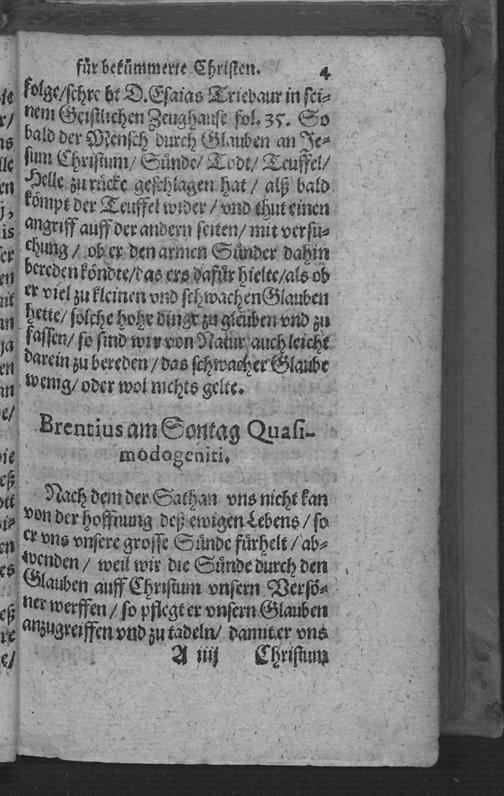 für bekümmerte Christen. 4
folge/schre bt D. Esaias Triebaur in sei-
nem Geistlichen Zeughause fol. 35. So
bald der Mensch durch Glauben an Je-
sum Christum/ Sünde/ Todt/ Teuffel/
Helle zu rücke geschlagen hat / alß bald
kömpt der Teuffel wider / vnd thut einen
angriff auff der andern seiten/ mit versu-
chung / ob er den armen Sünder dahin
bereden köndte/das ers dafür hielte/als ob
er viel zu kleinen vnd schwachen Glauben
hette/ solche hohe dinge zu gleuben vnd zu
fassen/ so sind wir von Natur auch leicht
darein zu bereden / das schwacher Glaube
wenig/ oder wol nichts gelte.
Brentius am Sontag Quasi-
modogeniti.
Nach dem der Sathan vns nicht kan
von der hoffnung deß ewigen Lebens / so
er vns vnsere grosse Sünde fürhelt / ab-
wenden / weil wir die Sünde durch den
Glauben auff Christum vnsern Versö-
ner werffen / so pflegt er vnsern Glauben
anzugreiffen vnd zu tadeln/ damit er vns
A iiij Christum